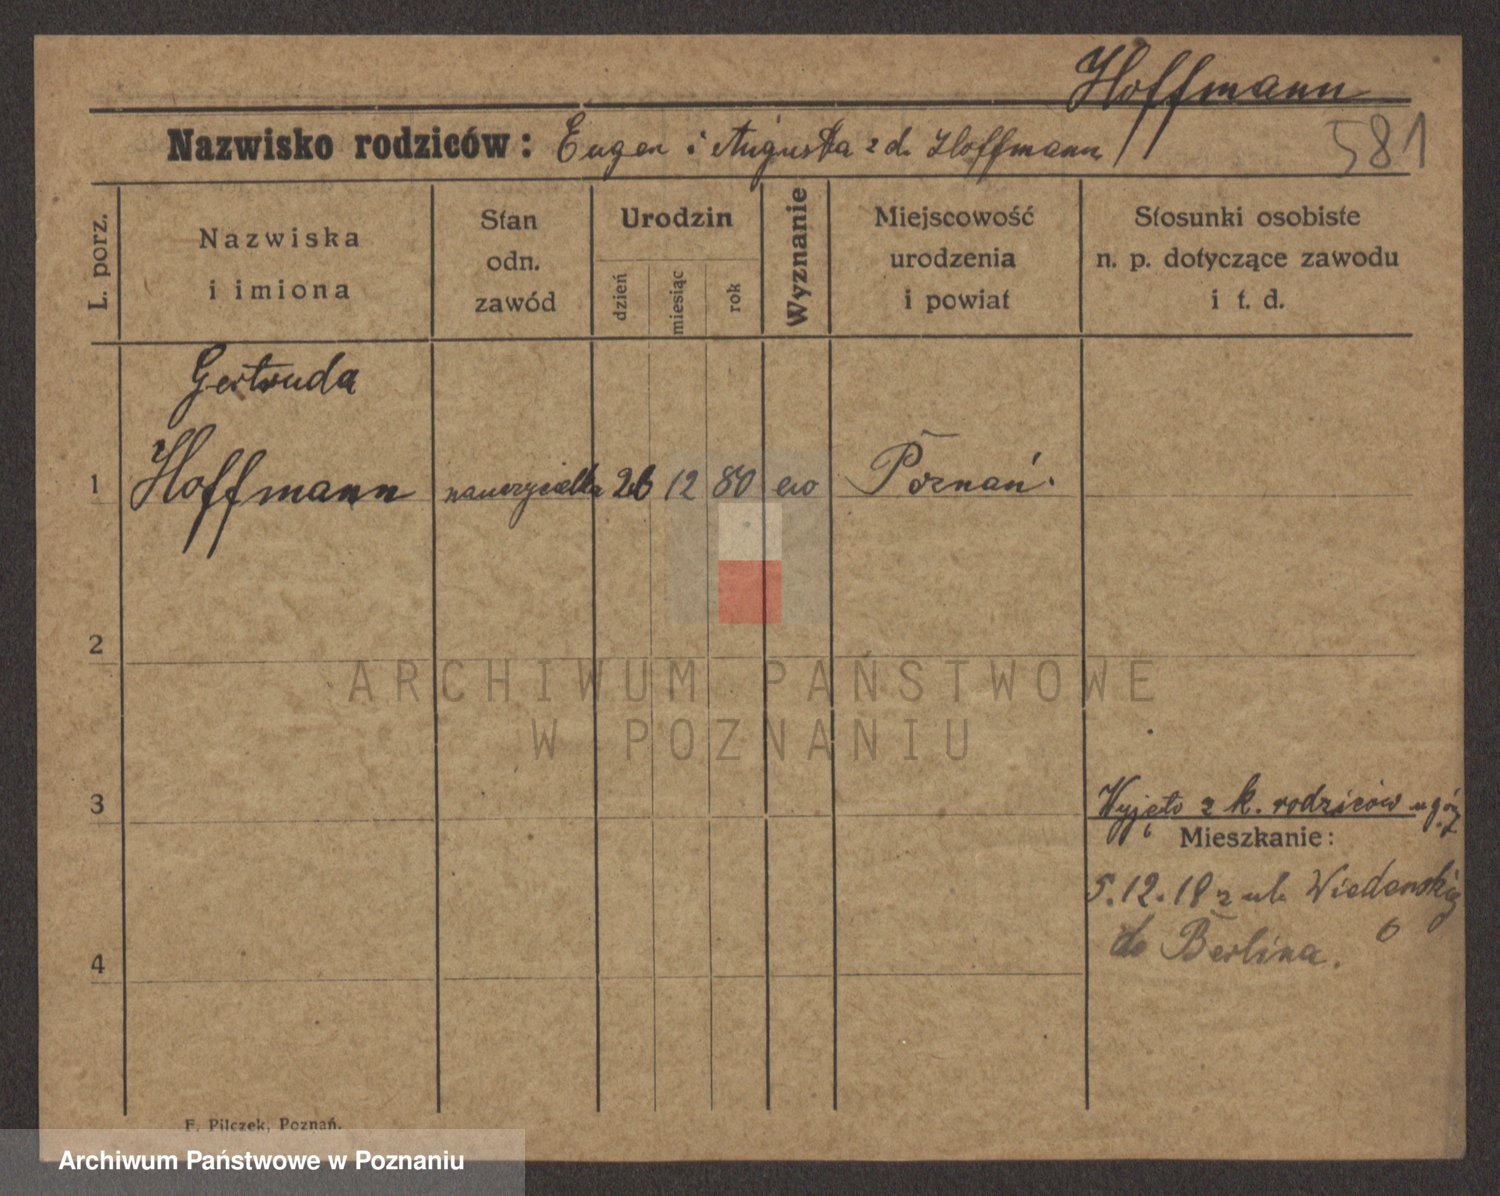 Hoffmann
Nazwisko rodziców: Eugen i Augusta z d. Hoffmann
581
L. porz.
Nazwiska
i imiona
Stan
odn.
zawód
Urodzin
dzień
miesiąc
rok
Wyznanie
Miejscowość
urodzenia
i powiat
Stosunki osobiste
n. p. dotyczące zawodu
i t. d.
Gertruda
1 Hoffmann nauczycielka 26 12 80 ew Poznań.
2
ARCHIWUM PAŃSTWOWE
W POZNANIU
3
Wyjęto z k. rodziców
Mieszkanie:
5.12.18 z ul. Wiedenskiej
6
do Berlina.
4
F. Pilczek, Poznań.
Archiwum Państwowe w Poznaniu